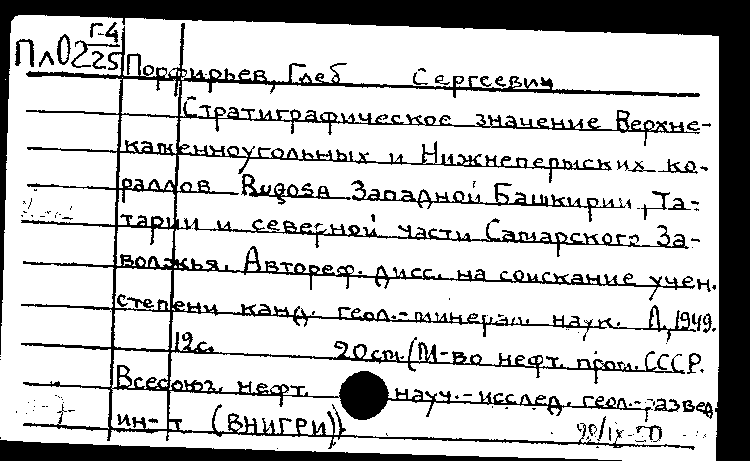 Г-4
Пл02 25
Порфирьев, Глеб Сергеевич
Стратиграфическое значение Верхне-
каменноугольных и Нижнепермских ко-
раллов Rugosa Западной Башкирии, Та-
тарии и северной части Самарского За-
волжья. Автореф. дисс. на соискание учен.
степени канд. геол.-минерал. наук. Л., 1949.
12с. 20см. (М-во нефт. пром. СССР.
Всесоюз. нефт. науч.-исслед. геол.-развед.
ин-т (ВНИГРИ))